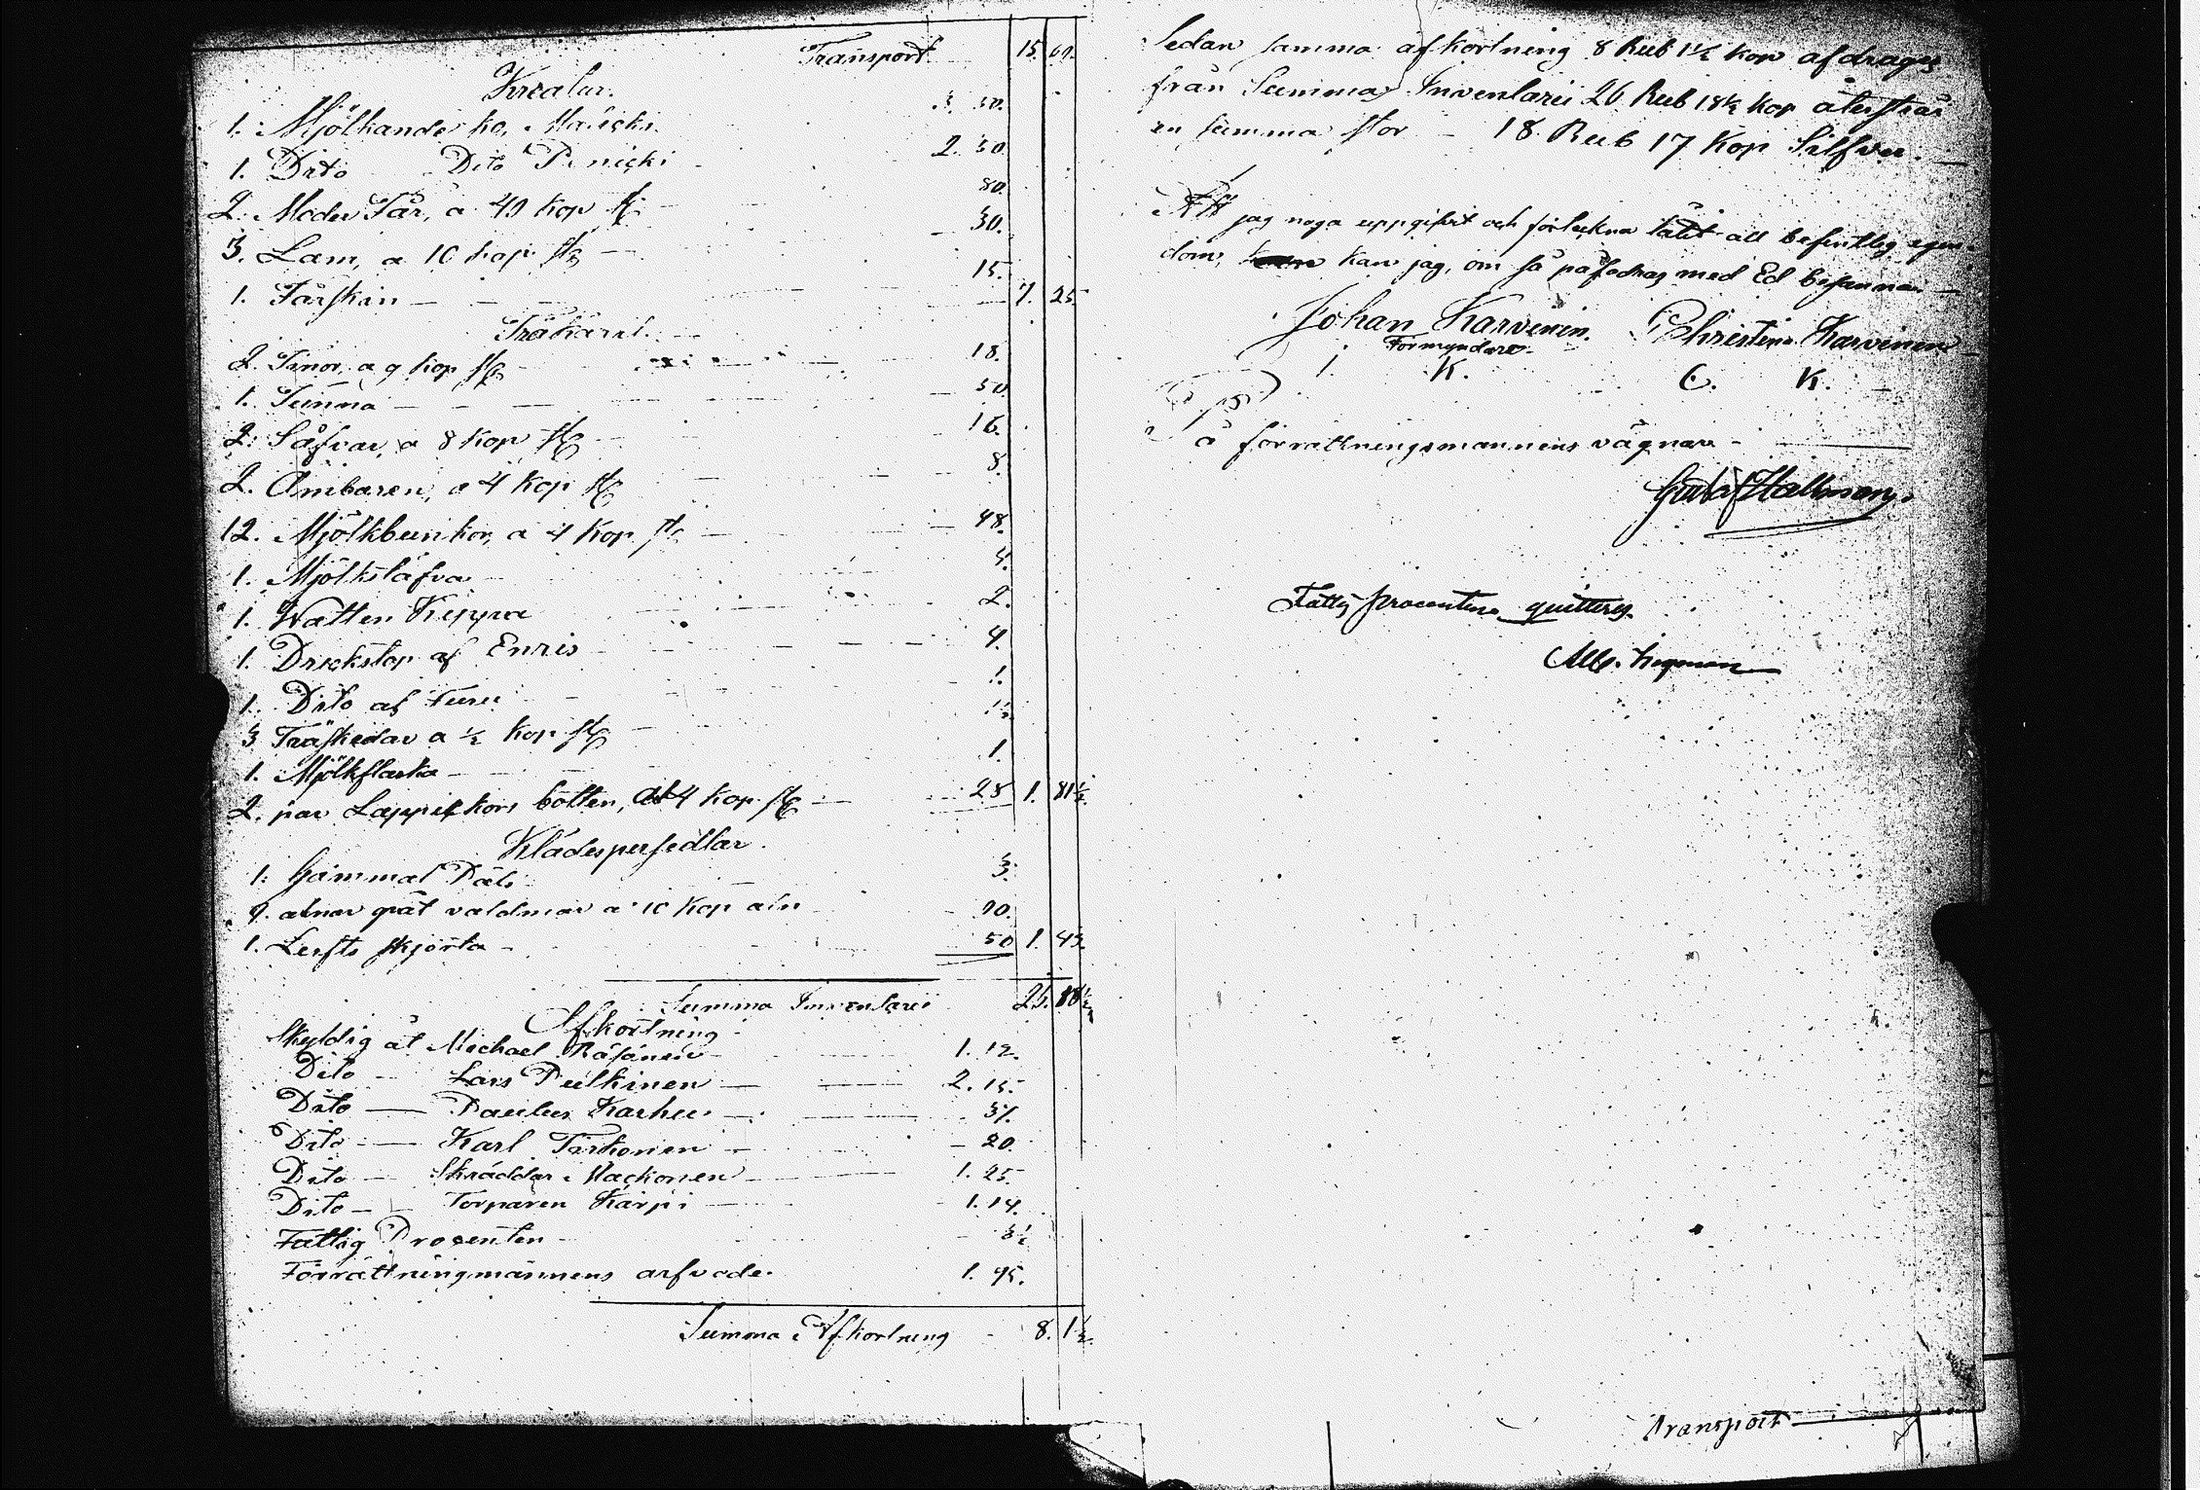 Transport 15. 67.
Kreatur.
1. Mjölkande ko, Mansicki 3. 50.
1. Dito Dito Penicki 2. 50.
2. Moder Får, a 40 kop st. 80.
3. Lam, a 10 kop st 30.
1. Fårskin 15. 7. 25
Träkäril.
2. Tinor, a 9 kop st 18.
1. Tunna 50
2. Såfvar, a 8 kop st 16.
2. Ämbaren, a 4 kop st 8.
12. Mjölkbunkor, a 4 kop. st 48.
1. Mjölkståfva 4.
1. Watten Kippa 2.
1. Drickstop af Enris 4.
1. Dito af Furu 1.
3 Träskedar a ½ kop st 1½
1. Mjölkflaska 1.
2. par Lappikkors botten, 4 kop. st 28 1. 81½
Klädespersedlar.
1. Gammal Päls 3.
9. alnar grått valdmar a 10 kop aln 90.
1. Lerfts skjorta 50 1. 43.
Summa Inventarii 26. 18½
Afkortning
Skyldig åt Michael Räsänen 1. 12.
Dito Lars Pulkinen 2. 15.
Dito Paulus Karhu 37.
Dito Karl Tarkonen 20.
Dito Skräddar Mackonen 1. 25.
Dito Torparen Kärpi 1. 14.
Fattig Procenten 3½
Förrättningmännens arfvode 1. 95.
Summa Afkortning 8. 1½
Sedan samma afkortning 8 Rub 1½ kop afdrages
från Summa Inventarii 26 Rub 18½ kop återstår
en summa stor 18 Rub 17 Kop Silfver.
Att jag noga uppgifvit och förteckna låtit all befintlig egen-
dom, kan jag, om så påfodras med Ed besanna
Johan Karvinen. Christina Karvinen
Förmyndare
I. K. C. K.
å förrättningsmannens vägnar
Gustaf Hallman.
Fattig procenten quitteras.
Transport